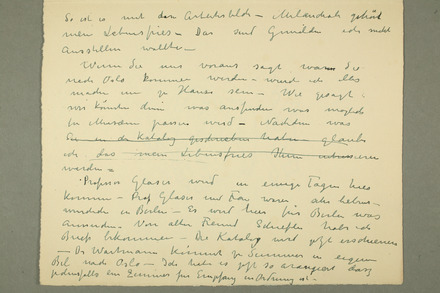 So ist es mit den Arbeiterbilder – Melancholi gehört
mein Lebensfries – Das sind Gemälde ich nicht
Ausstellen wollte –
Wenn Sie uns voraus sagt wann Sie
nach Oslo kommen werden – werde ich alles
machen um zu Hause sein – Wie gesagt
wir könnten dann was aussuchen was möglich
im Museum passen wird – Nachdem was
Sie in der Katalog geschrieben haben – glaube
ich das mein Lebensfries Ihnen interessieren
werden –
Professor Glaser wird in einige Tagen hier
kommen – Prof Glaser und Frau waren sehr liebens-
würdich in Berlin – Er wird hier für Berlin was
Von alter Freund Schiefler habe ich
Brief bekommen – Die Katalog wird jetzt erscheinen
– Dr Wartmann kommt im Sommer in eigen
Bil nach Oslo – Ich habe es jetzt so arrangiert dass
jedenfalls ein Zimmer für Empfang in Ordnung ist –